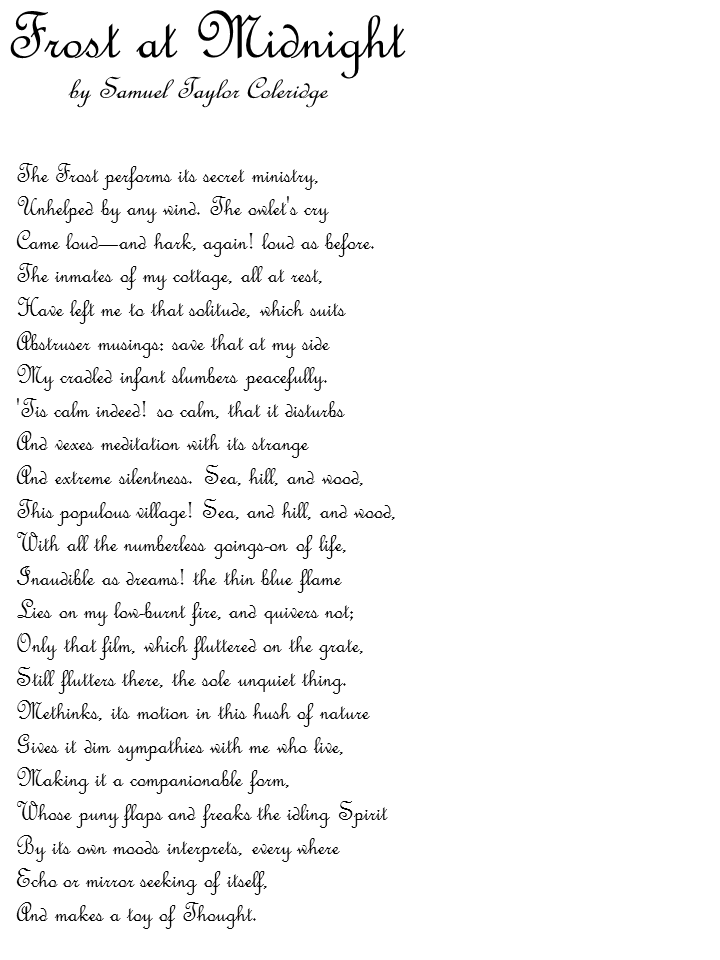 Frost at Midnight
by Samuel Taylor Coleridge
The Frost performs its secret ministry,
Unhelped by any wind. The owlet's cry
Came loud—and hark, again! loud as before.
The inmates of my cottage, all at rest,
Have left me to that solitude, which suits
Abstruser musings: save that at my side
My cradled infant slumbers peacefully.
'Tis calm indeed! so calm, that it disturbs
And vexes meditation with its strange
And extreme silentness. Sea, hill, and wood,
This populous village! Sea, and hill, and wood,
With all the numberless goings-on of life,
Inaudible as dreams! the thin blue flame
Lies on my low-burnt fire, and quivers not;
Only that film, which fluttered on the grate,
Still flutters there, the sole unquiet thing.
Methinks, its motion in this hush of nature
Gives it dim sympathies with me who live,
Making it a companionable form,
Whose puny flaps and freaks the idling Spirit
By its own moods interprets, every where
Echo or mirror seeking of itself,
And makes a toy of Thought.